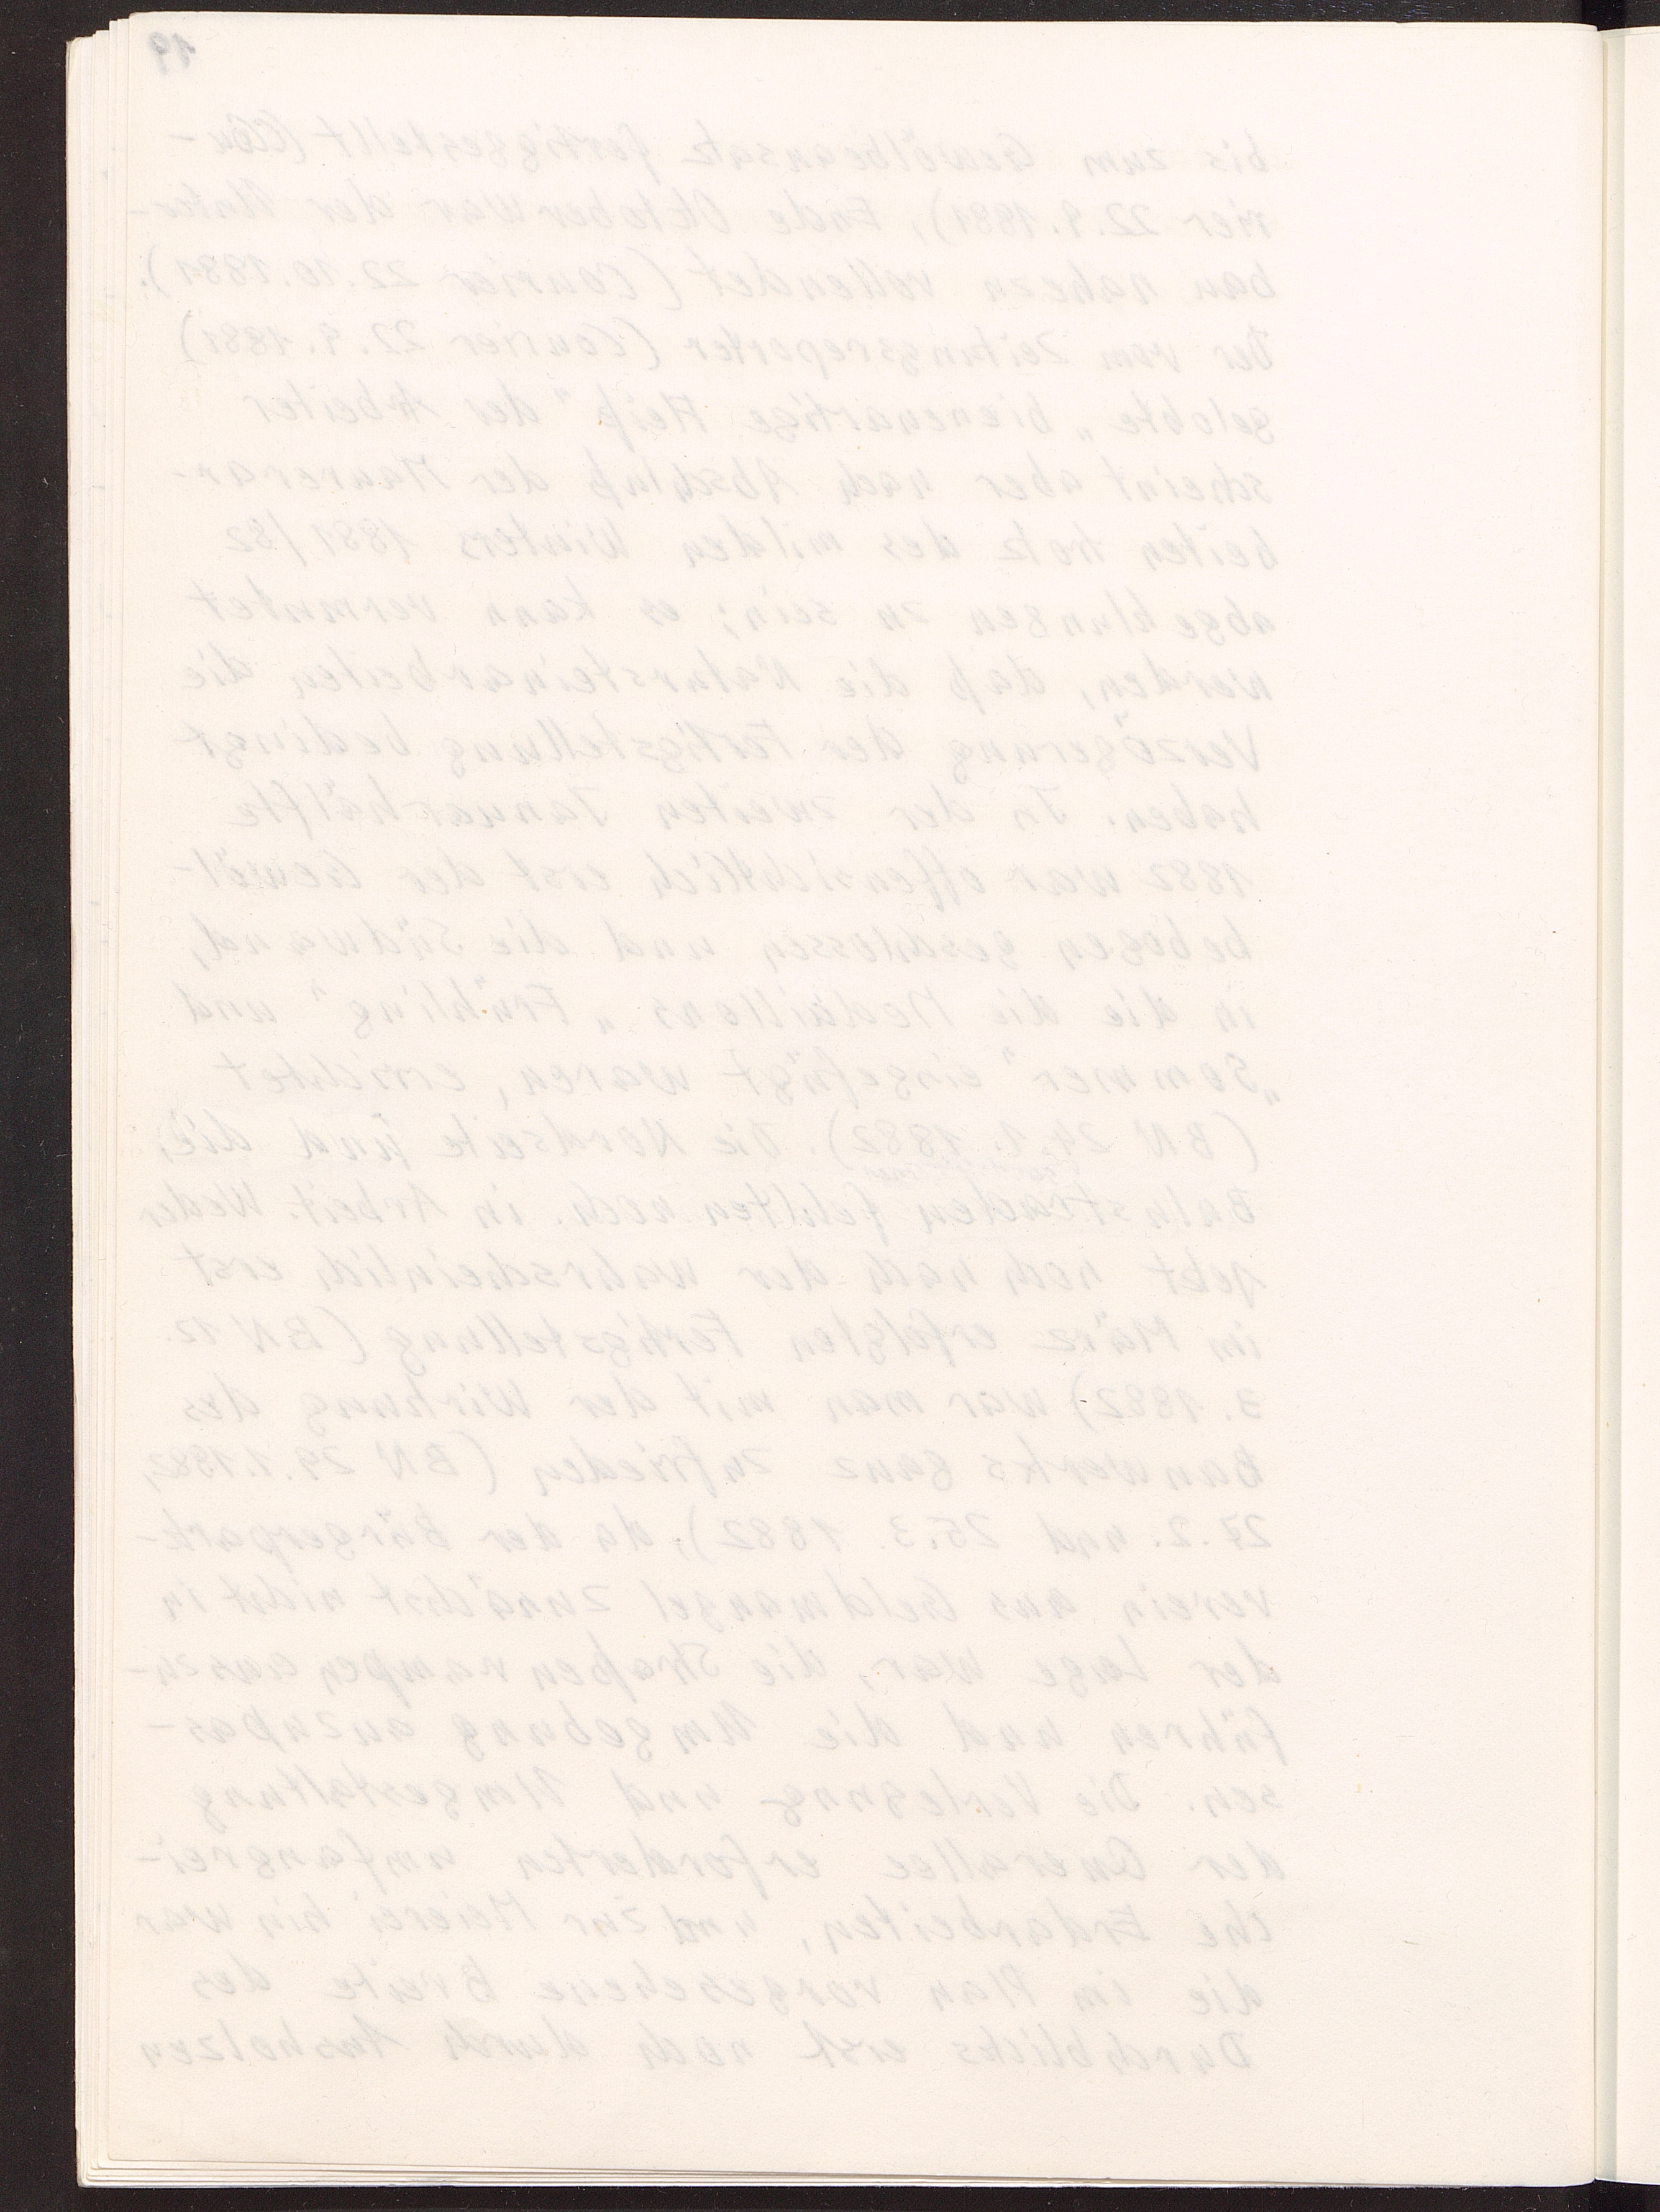 19
bis zum Gewölbeansatz fertiggestellt (Cou-
rier 22.9.1881), Ende Oktober war der Unter-
bau nahezu vollendet (Courier 22.10.1881).
Der vom Zeitungsreporter (Courier 22.9.1881)
gelobte „bienenartige Fleiß" der Arbeiter
scheint aber nach Abschluß der Maurerar-
beiten trotz des milden Winters 1881/82
abgeklungen zu sein; es kann vermutet
werden, daß die Natursteinarbeiten die
Verzögerung der Fertigstellung bedingt
haben. In der zweiten Januarhälfte
1882 war offensichtlich erst der Gewöl-
bebogen geschlossen und die Südwand,
in die die Medaillons „Frühling" und
„Sommer" eingefügt waren, errichtet
(BN 24.1.1882). Die Nordseite und die
Balustraden fehlten noch. in Arbeit. Weder
jetzt noch nach der wahrscheinlich erst
im März erfolgten Fertigstellung (BN 12.
3.1882) war man mit der Wirkung des
Bauwerks ganz zufrieden (BN 29.1.1882,
27.2. und 25.3. 1882), da der Bürgerpark-
verein aus Geldmangel zunächst nicht in
der Lage war, die Straßenrampen auszu-
führen und die Umgebung anzupas-
sen. Die Verlegung und Umgestaltung
der Querallee erforderten umfangrei-
che Erdarbeiten, und zur Meierei hin war
die im Plan vorgesehene Breite des
Durchblicks erst noch durch Ausholzen